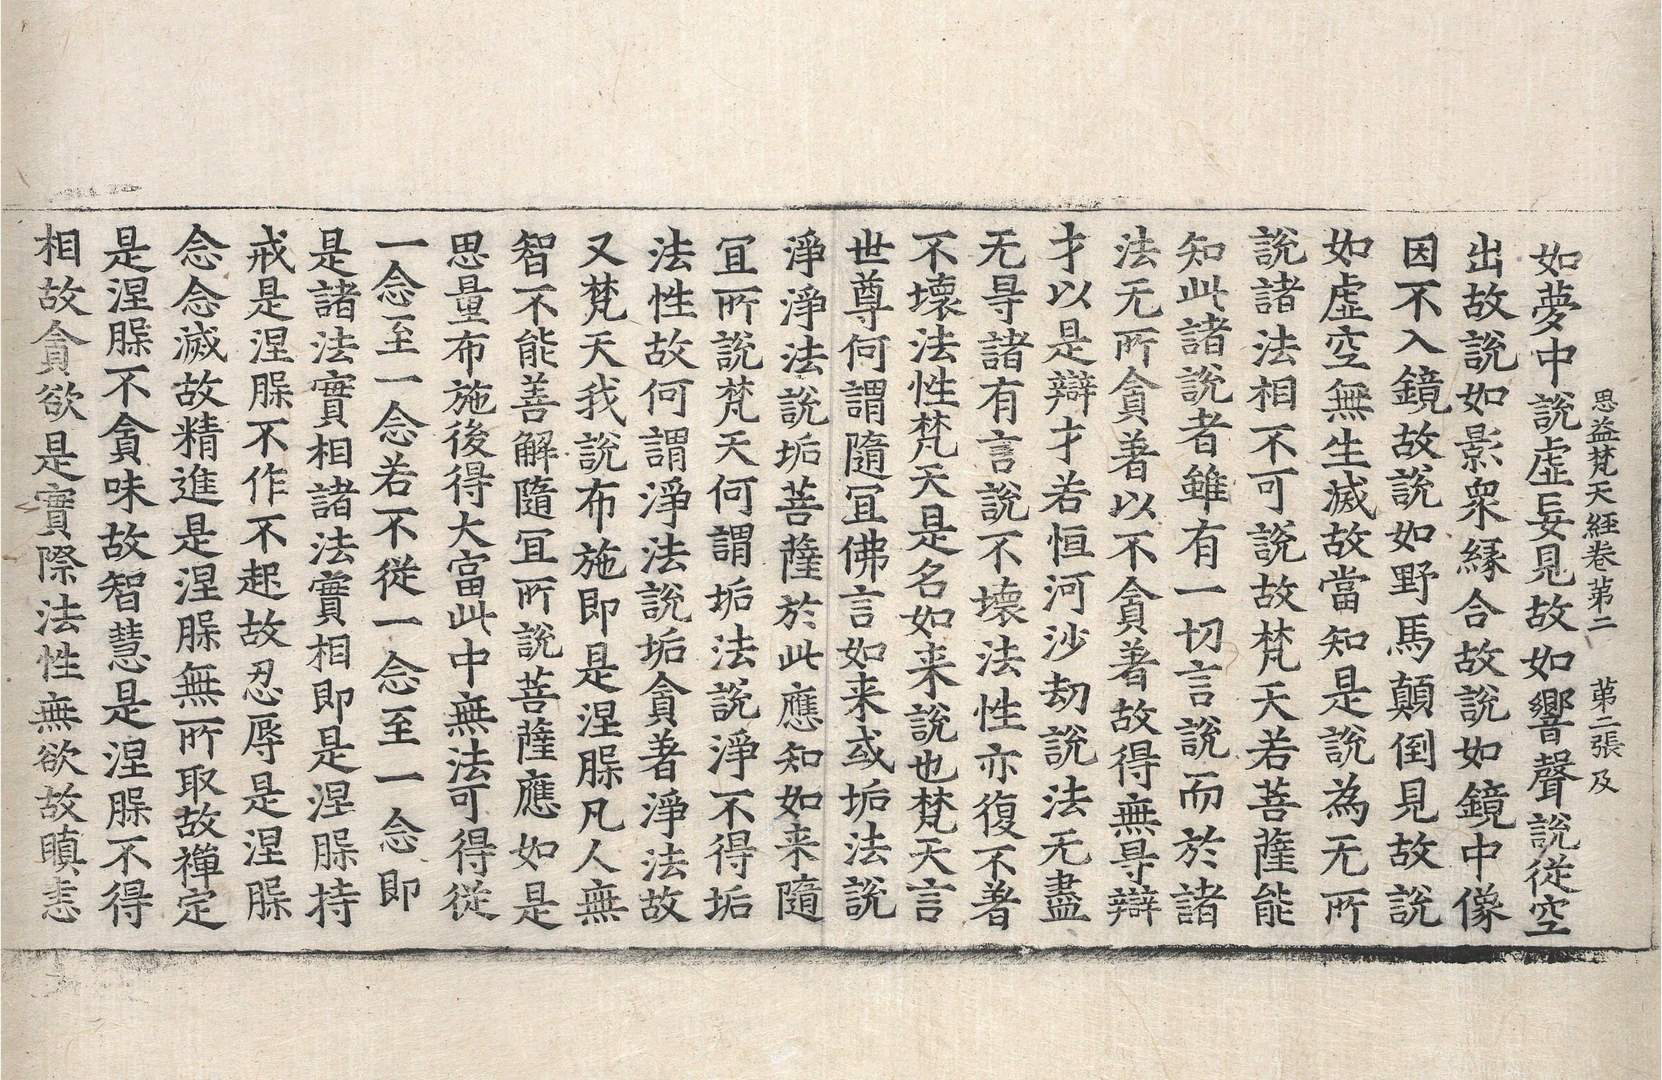 思益梵天経卷苐二　苐二張及
如夢中說虛妄見故如響聲說從空
出故說如影衆緣合故說如鏡中像
因不入鏡故說如野馬顛倒見故說
如虛空無生滅故當知是說為无所
說諸法相不可說故梵天若菩薩能
知此諸說者雖有一切言說而於諸
法无所貪著以不貪著故得無㝵辯
才以是辯才若恒河沙劫說法无盡
无㝵諸有言說不壞法性亦復不著
不壞法性梵天是名如来說也梵天言
世尊何謂隨冝佛言如来或垢法說
淨淨法說垢菩薩於此應知如来隨
冝所說梵天何謂垢法說淨不得垢
法性故何謂淨法說垢貪著淨法故
又梵天我說布施即是涅槃凡人無
智不能善解隨冝所說菩薩應如是
思量布施後得大富此中無法可得從
一念至一念若不從一念至一念即
是諸法實相諸法實相即是涅槃持
戒是涅槃不作不起故忍辱是涅槃
念念滅故精進是涅槃無所取故禪定
是涅槃不貪味故智慧是涅槃不得
相故貪欲是實際法性無欲故瞋恚